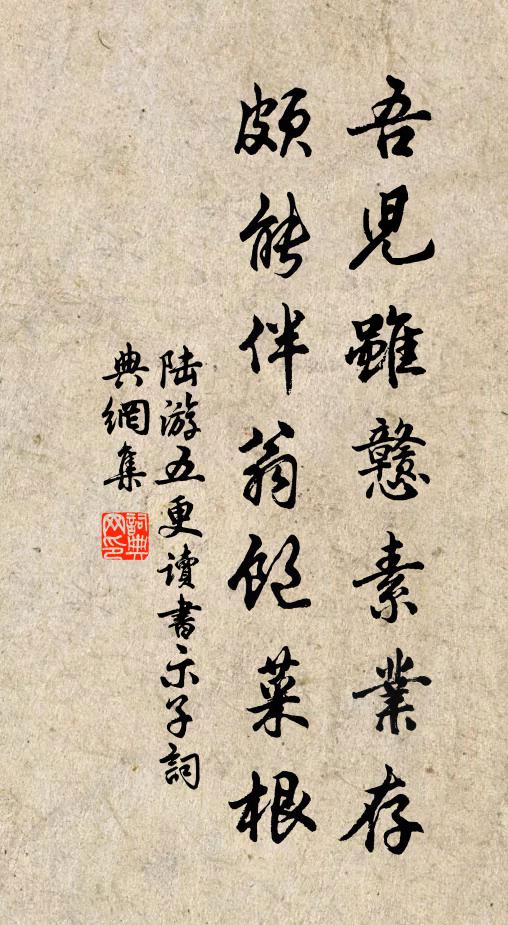 吾兒雖戇素業存
頗能伴翁飽菜根
陸游五更讀書示子詞
典網集
詞典
网印